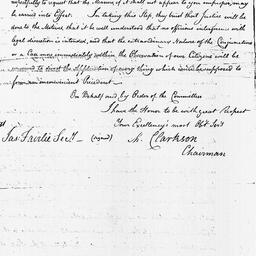 respectfully to request that the Measure, if it shall not appear to you improper, may
be carried into Effect. In taking this Step, they trust that Justice will be
done to the Motive, that it is well understood that no officious interference with
legal direction is intended, and that the extraordinary Nature of the Conjuncture
or a Case more immediately within the Observation of our Citizens will be
to the Application of every thing which
form an inconvenient Precedent.
On Behalf and by Order of the Committee
I have the Honor to be with great Respect
Your Excellency's most Obt Servt
Jas Fairlie Secy. (signed) M. Clarkson
Chairman